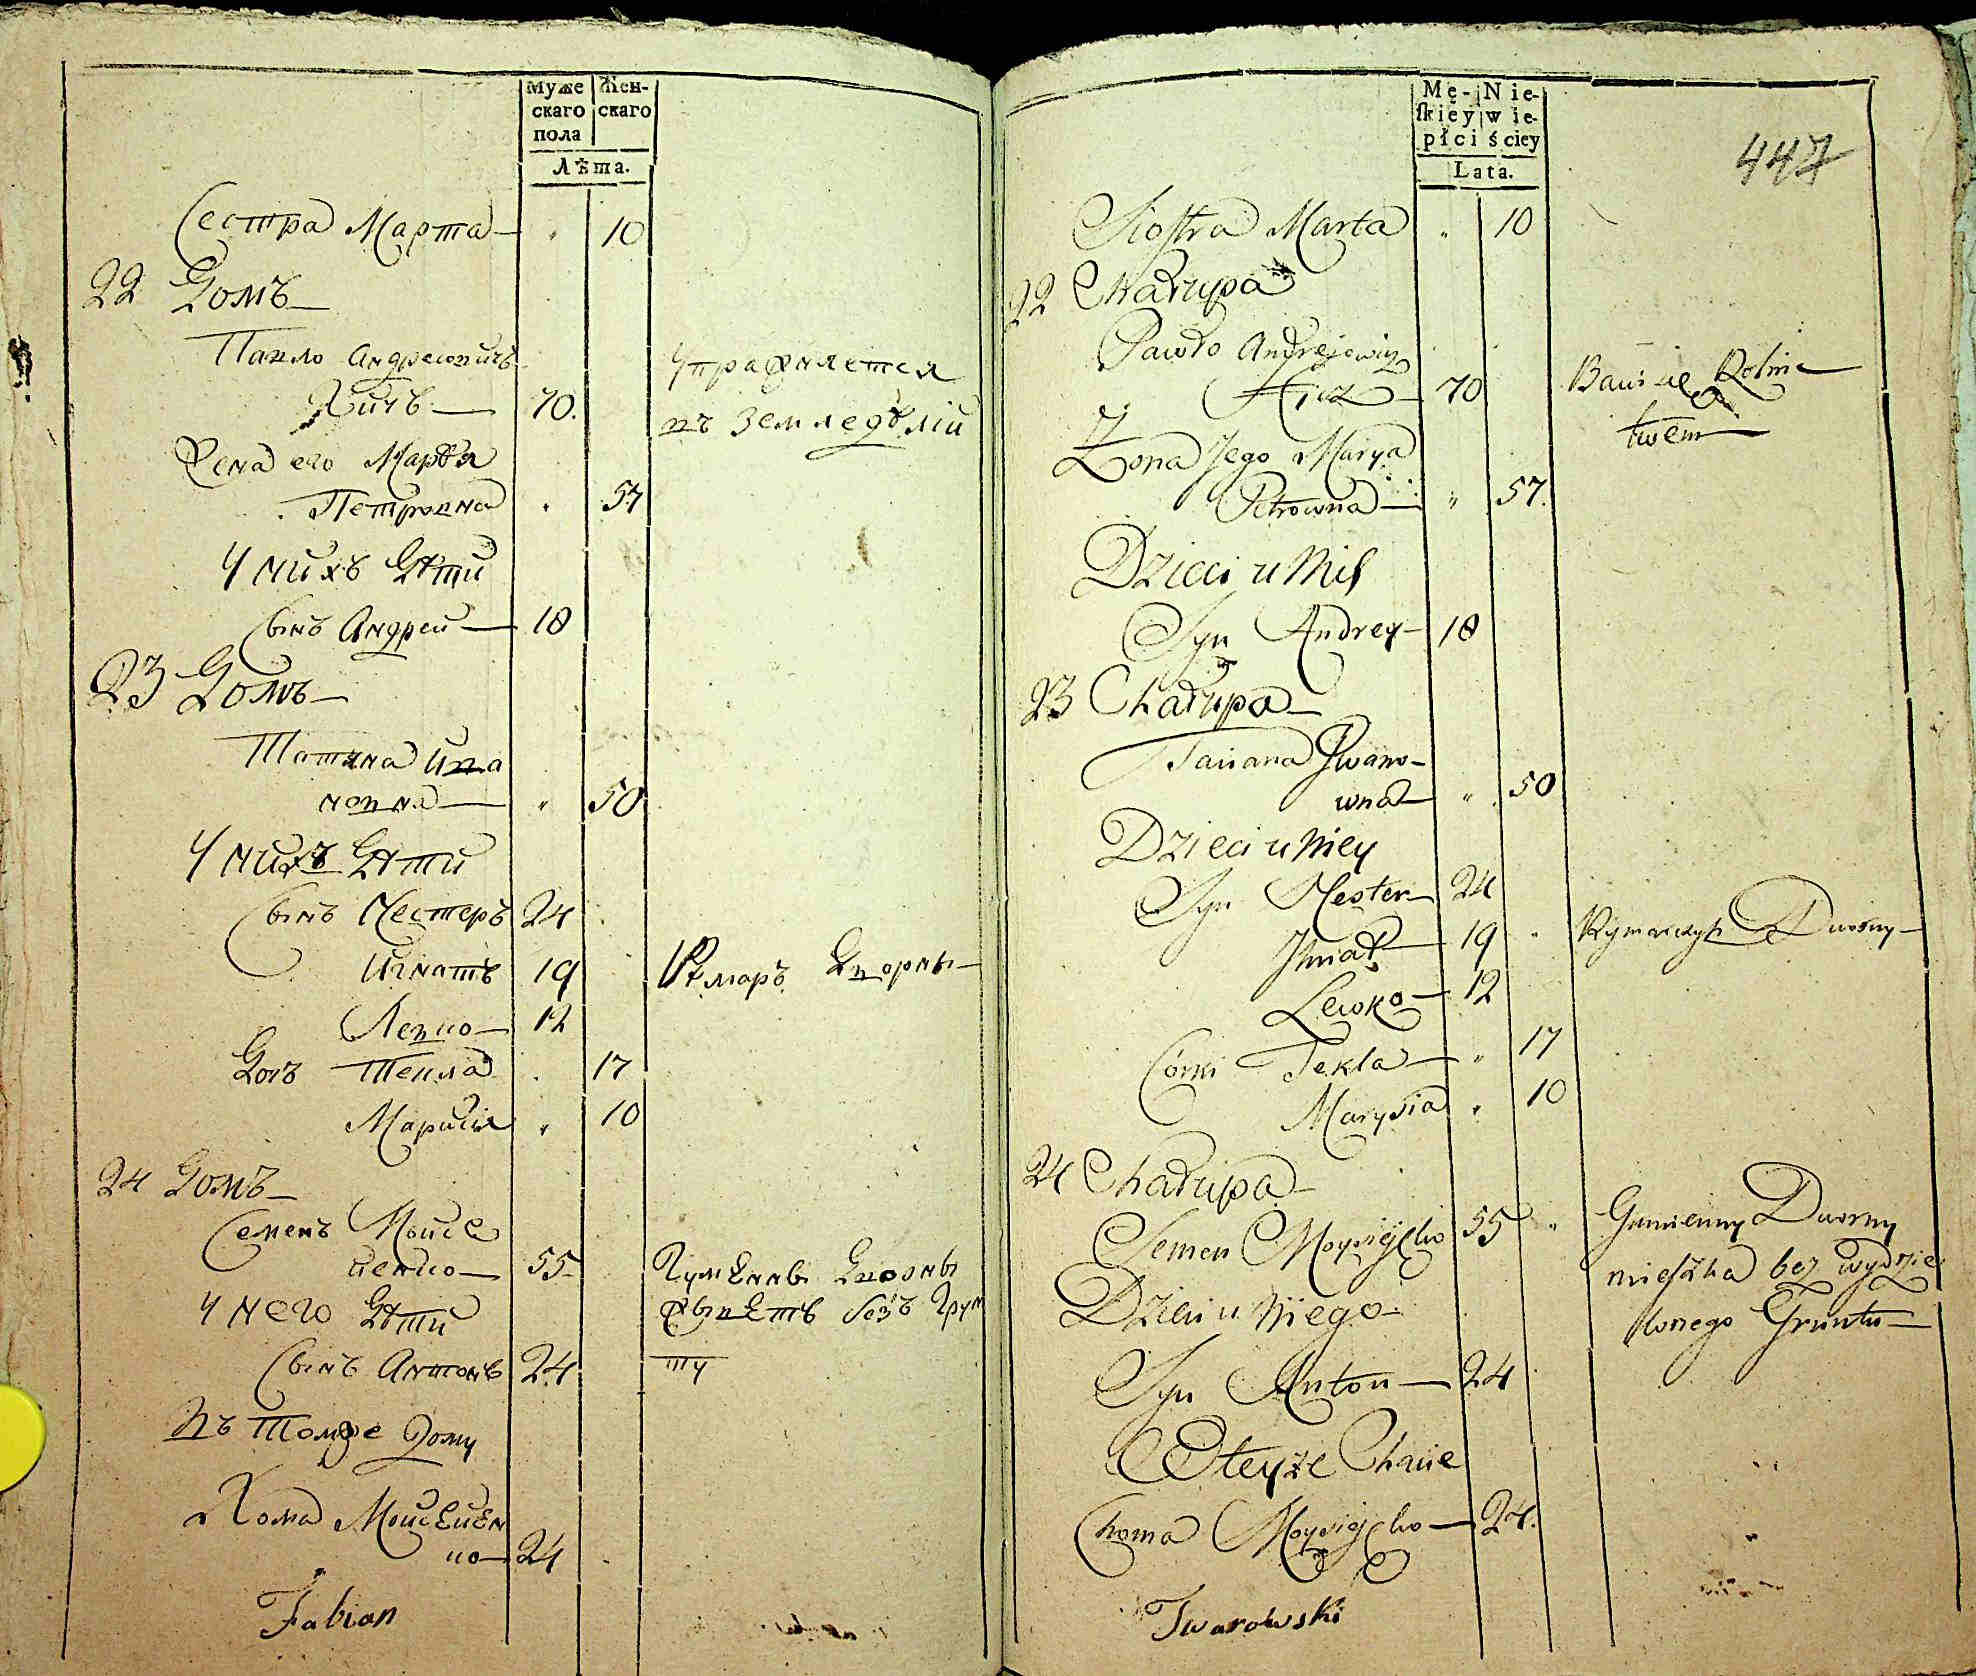 Муже
скаго
пола
Жен-
скаго
Лѣта.
Сестра Марта — " 10
22 Домъ —
Павло Андреювичъ
Хичъ — 70.
Упражняется
въ Земледѣлiи
Жена его Марья
Петровна " 57
У нихъ Дѣти
Сынъ Андрей — 18
23 Домъ —
Татяна Ива
новна — " 50
У нихъ Дѣти
Сынъ Нестеръ 24
Игнатъ 19 Рымаръ Дворны —
Левко — 12
Дочъ Текла " 17
Марися " 10
24 Домъ —
Семенъ Мойсе
йенко — 55 Гумѣнны Дворны
У него Дѣти
живѣтъ безъ Грун
Сынъ Антонъ 24
ту
Въ томже Дому
Хома Мойсѣйѣн
ко — 24
Fabian
Mę-
skiey
płci
Nie-
wie-
ściey
Lata.
447
Siostra Marta " 10
22 Chałupa
Pawło Andrejewicz
Hicz — 70 Bawi się Rolnic
twem —
Zona Jego Marya
Petrowna — " 57.
Dzieci u Nich
Syn Andrey — 18
23 Chałupa —
Taciana Jwano-
wna — " 50
Dzieci u Niey
Syn Nester — 24
Jhnat — 19 " Rymarczyk Dworny —
Lewko — 12
Córki Tekla — " 17
Marysia " 10
24 Chałupa —
Semen Moysiejko 55 " Gumienny Dworny
mieszka bez wydzie
lonego Gruntu —
Dzieci u Niego —
Syn Anton — 24
W Teyże Chacie
Choma Moysiejko — 24.
Twarowski